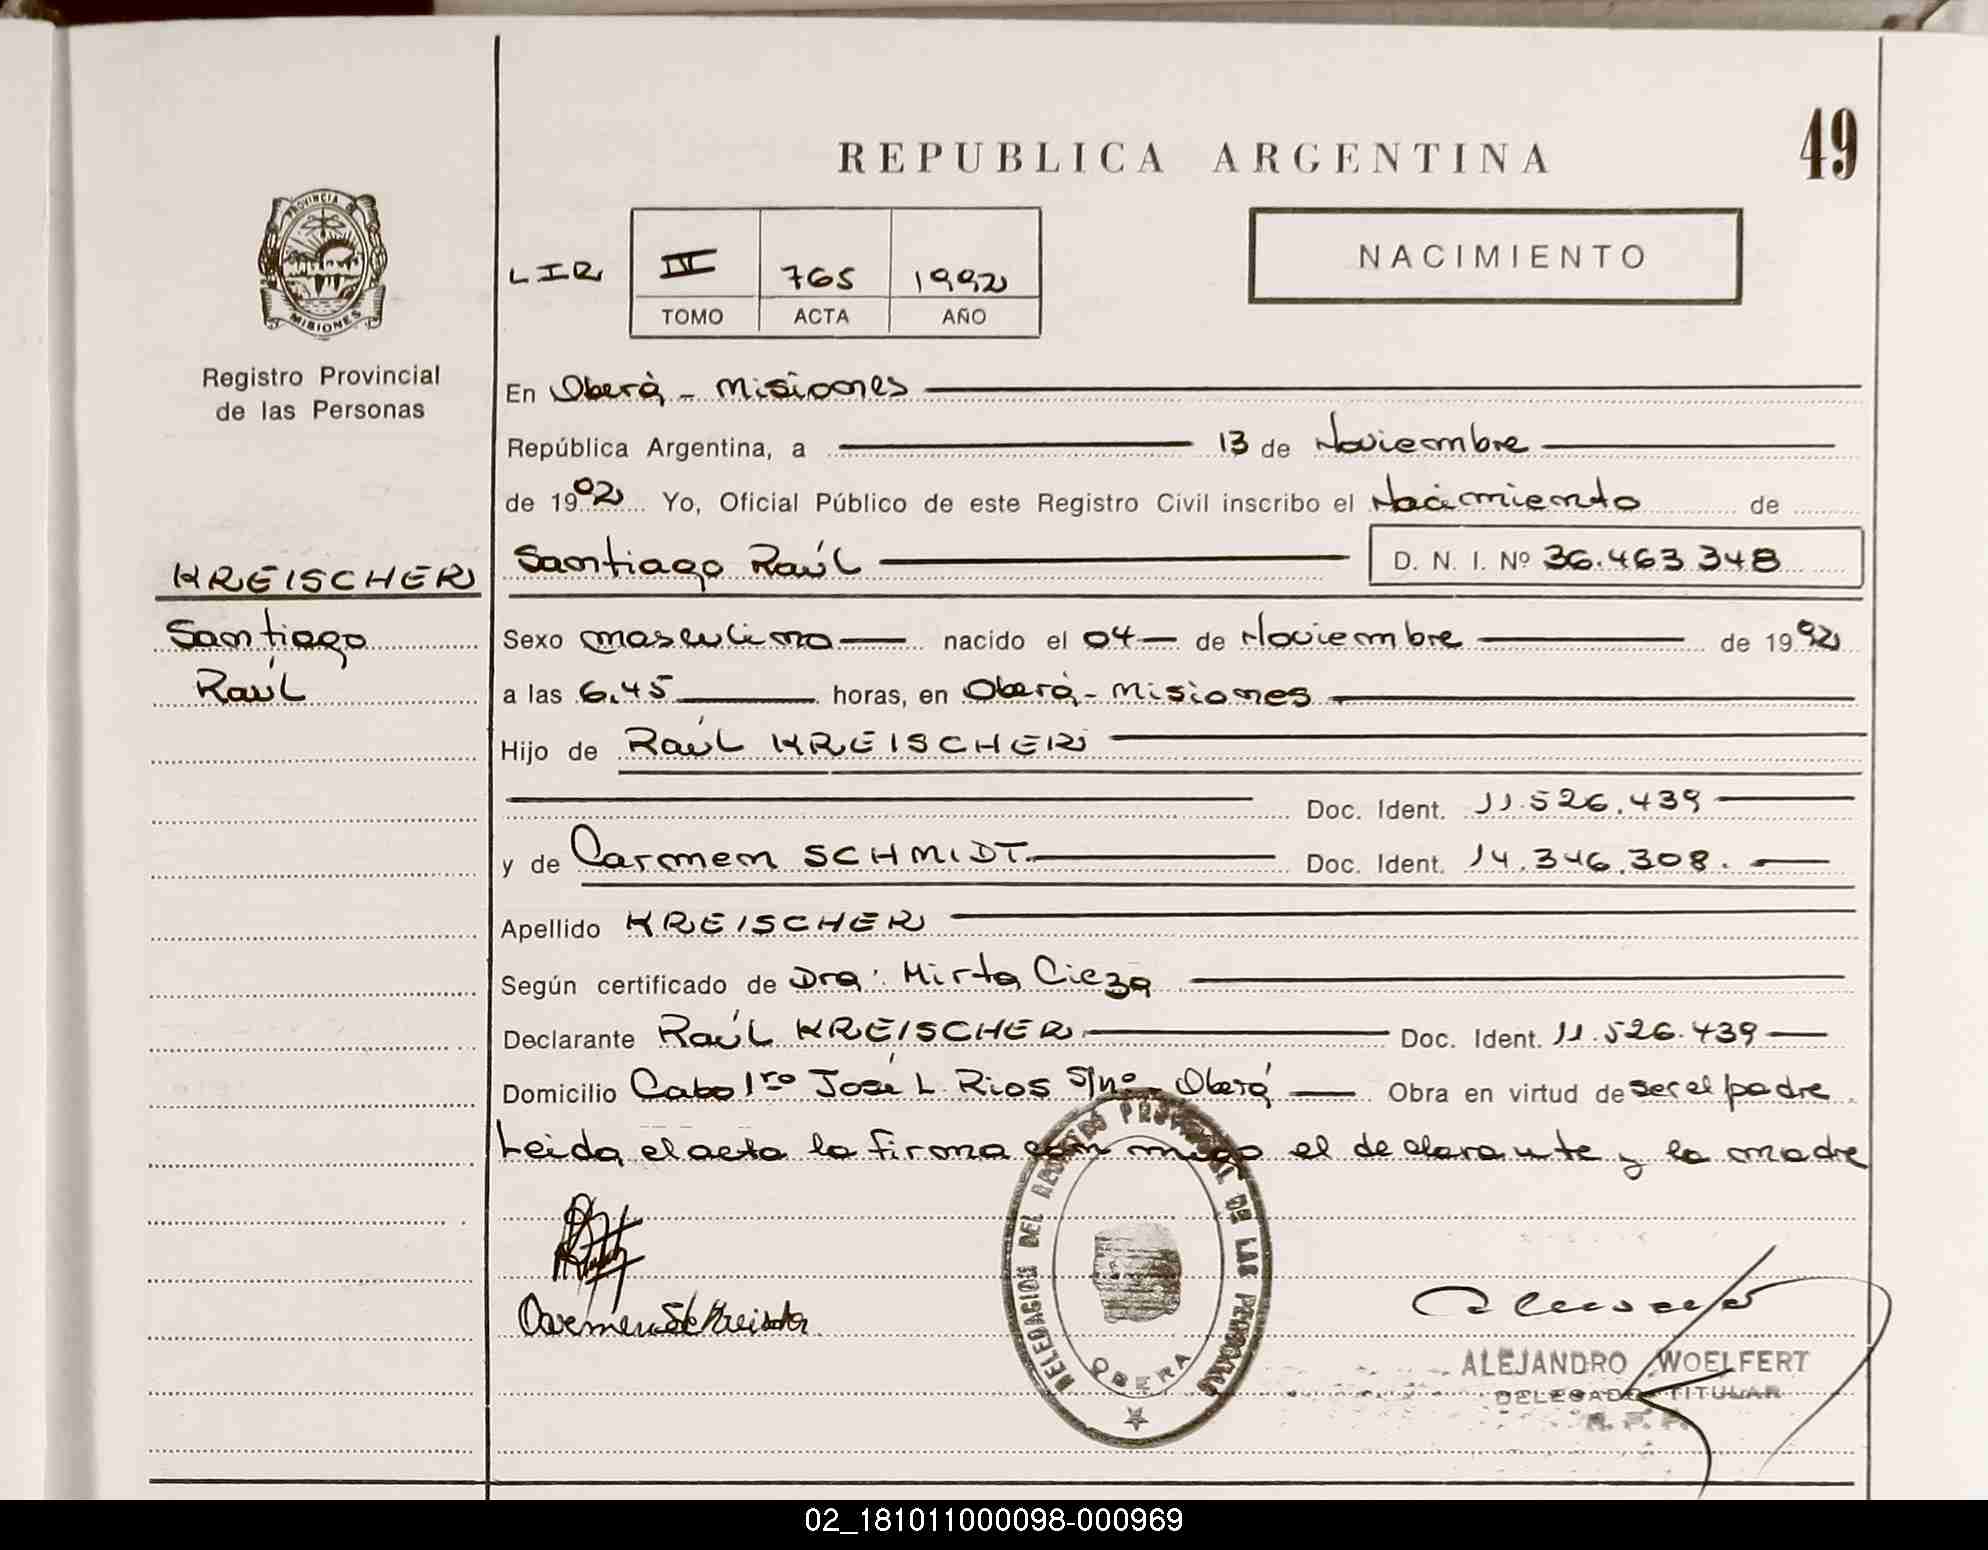 REPUBLICA ARGENTINA
49
PROVINCIA DE
MISIONES
Registro Provincial
de las Personas
LIR
765
1992
TOMO ACTA AÑO
NACIMIENTO
En Oberá - Misiones
República Argentina, a 13 de Noviembre
de 1992 Yo, Oficial Público de este Registro Civil inscribo el Nacimiento de
Santiago Raúl D. N. I. Nº 36.463.348
KREISCHER
Santiago
Raúl
Sexo masculino nacido el 04 de Noviembre de 1992
a las 6.45 horas, en Oberá - Misiones
Hijo de Raúl KREISCHER
Doc. Ident. 11.526.439
y de Carmen SCHMIDT Doc. Ident. 14.346.308.
Apellido KREISCHER
Según certificado de Dra: Mirta Cieza
Declarante Raúl KREISCHER Doc. Ident. 11.526.439
Domicilio Cabo 1ro José L. Rios S/nº - Oberá Obra en virtud de ser el padre
Leida el acta la firma con migo el declarante y la madre
DELEGACION DEL REGISTRO PROVINCIAL DE LAS PERSONAS
OBERA
Carmen S de Kreischer
ALEJANDRO WOELFERT
DELEGADO TITULAR
R. P. P.
02_181011000098-000969